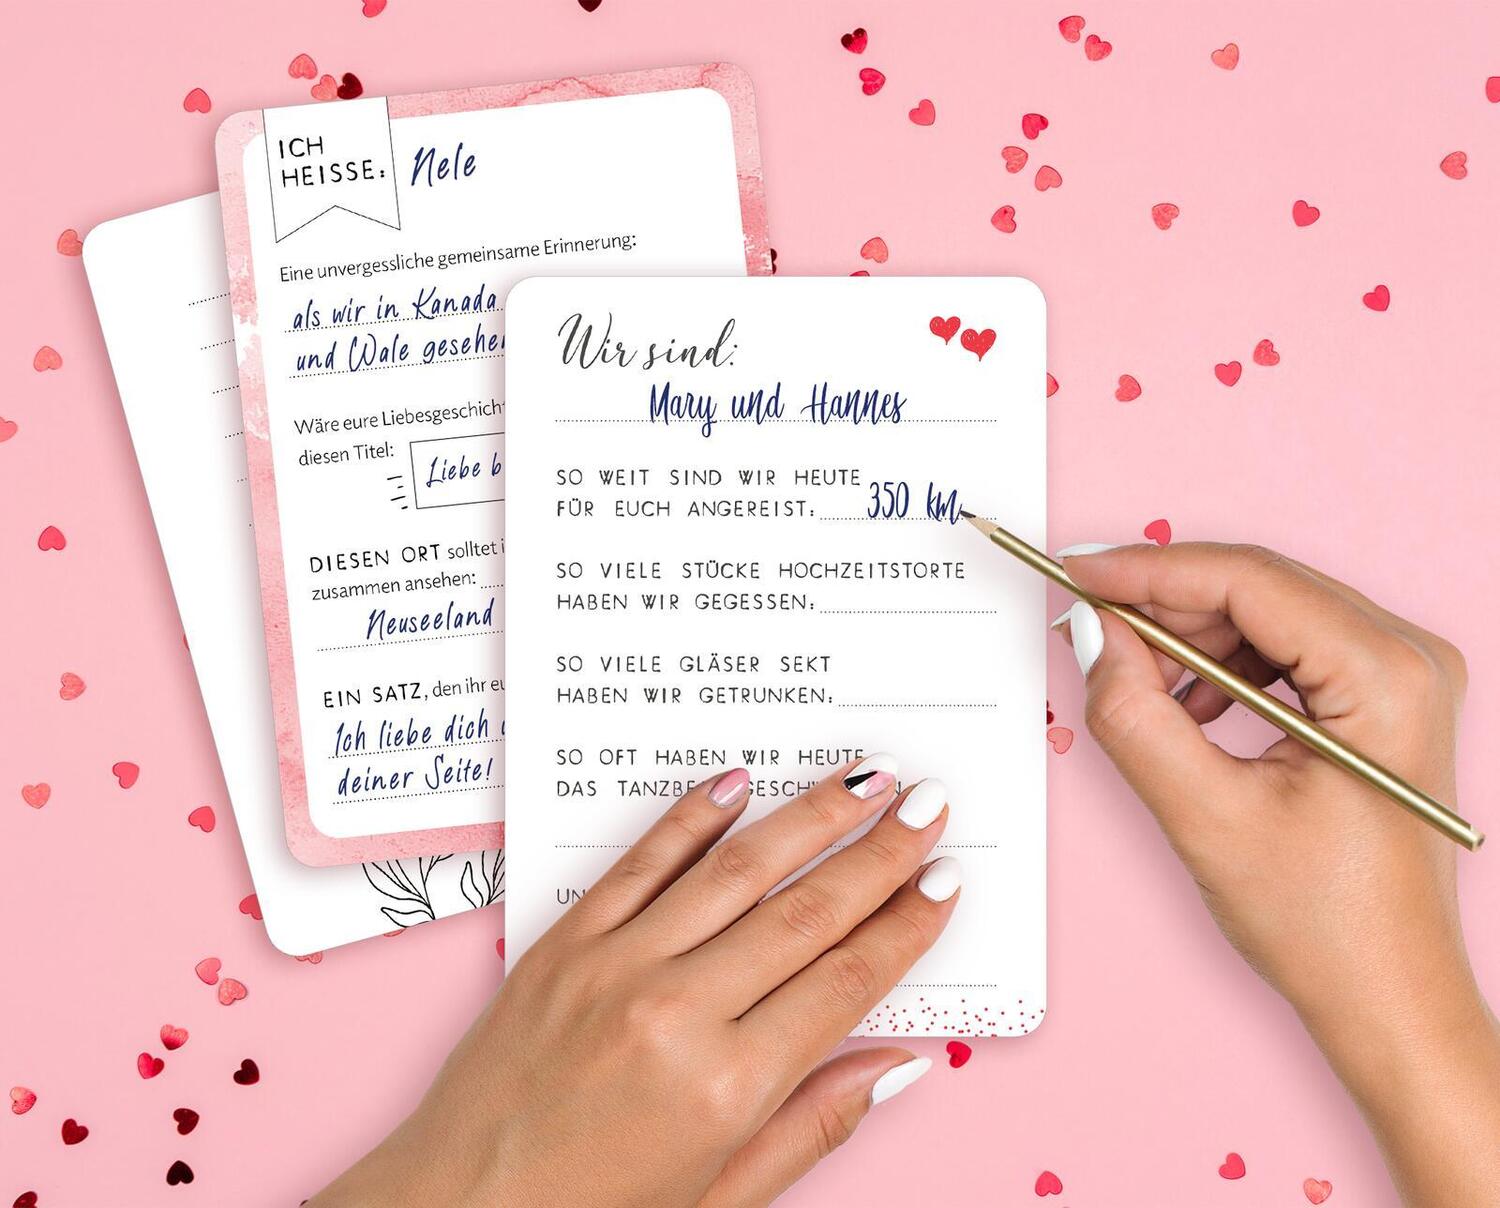 ICH
HEISSE: Nele
Eine unvergessliche gemeinsame Erinnerung:
als wir in Kanada
und Wale gesehen
Wäre eure Liebesgeschicht
diesen Titel:
Liebe b
DIESEN ORT solltet i
zusammen ansehen:
Neuseeland
EIN SATZ, den ihr eu
Ich liebe dich
deiner Seite!
Wir sind:
Mary und Hannes
SO WEIT SIND WIR HEUTE
FÜR EUCH ANGEREIST: 350 km
SO VIELE STÜCKE HOCHZEITSTORTE
HABEN WIR GEGESSEN:
SO VIELE GLÄSER SEKT
HABEN WIR GETRUNKEN:
SO OFT HABEN WIR HEUTE
DAS TANZBE GESCHW N
UN